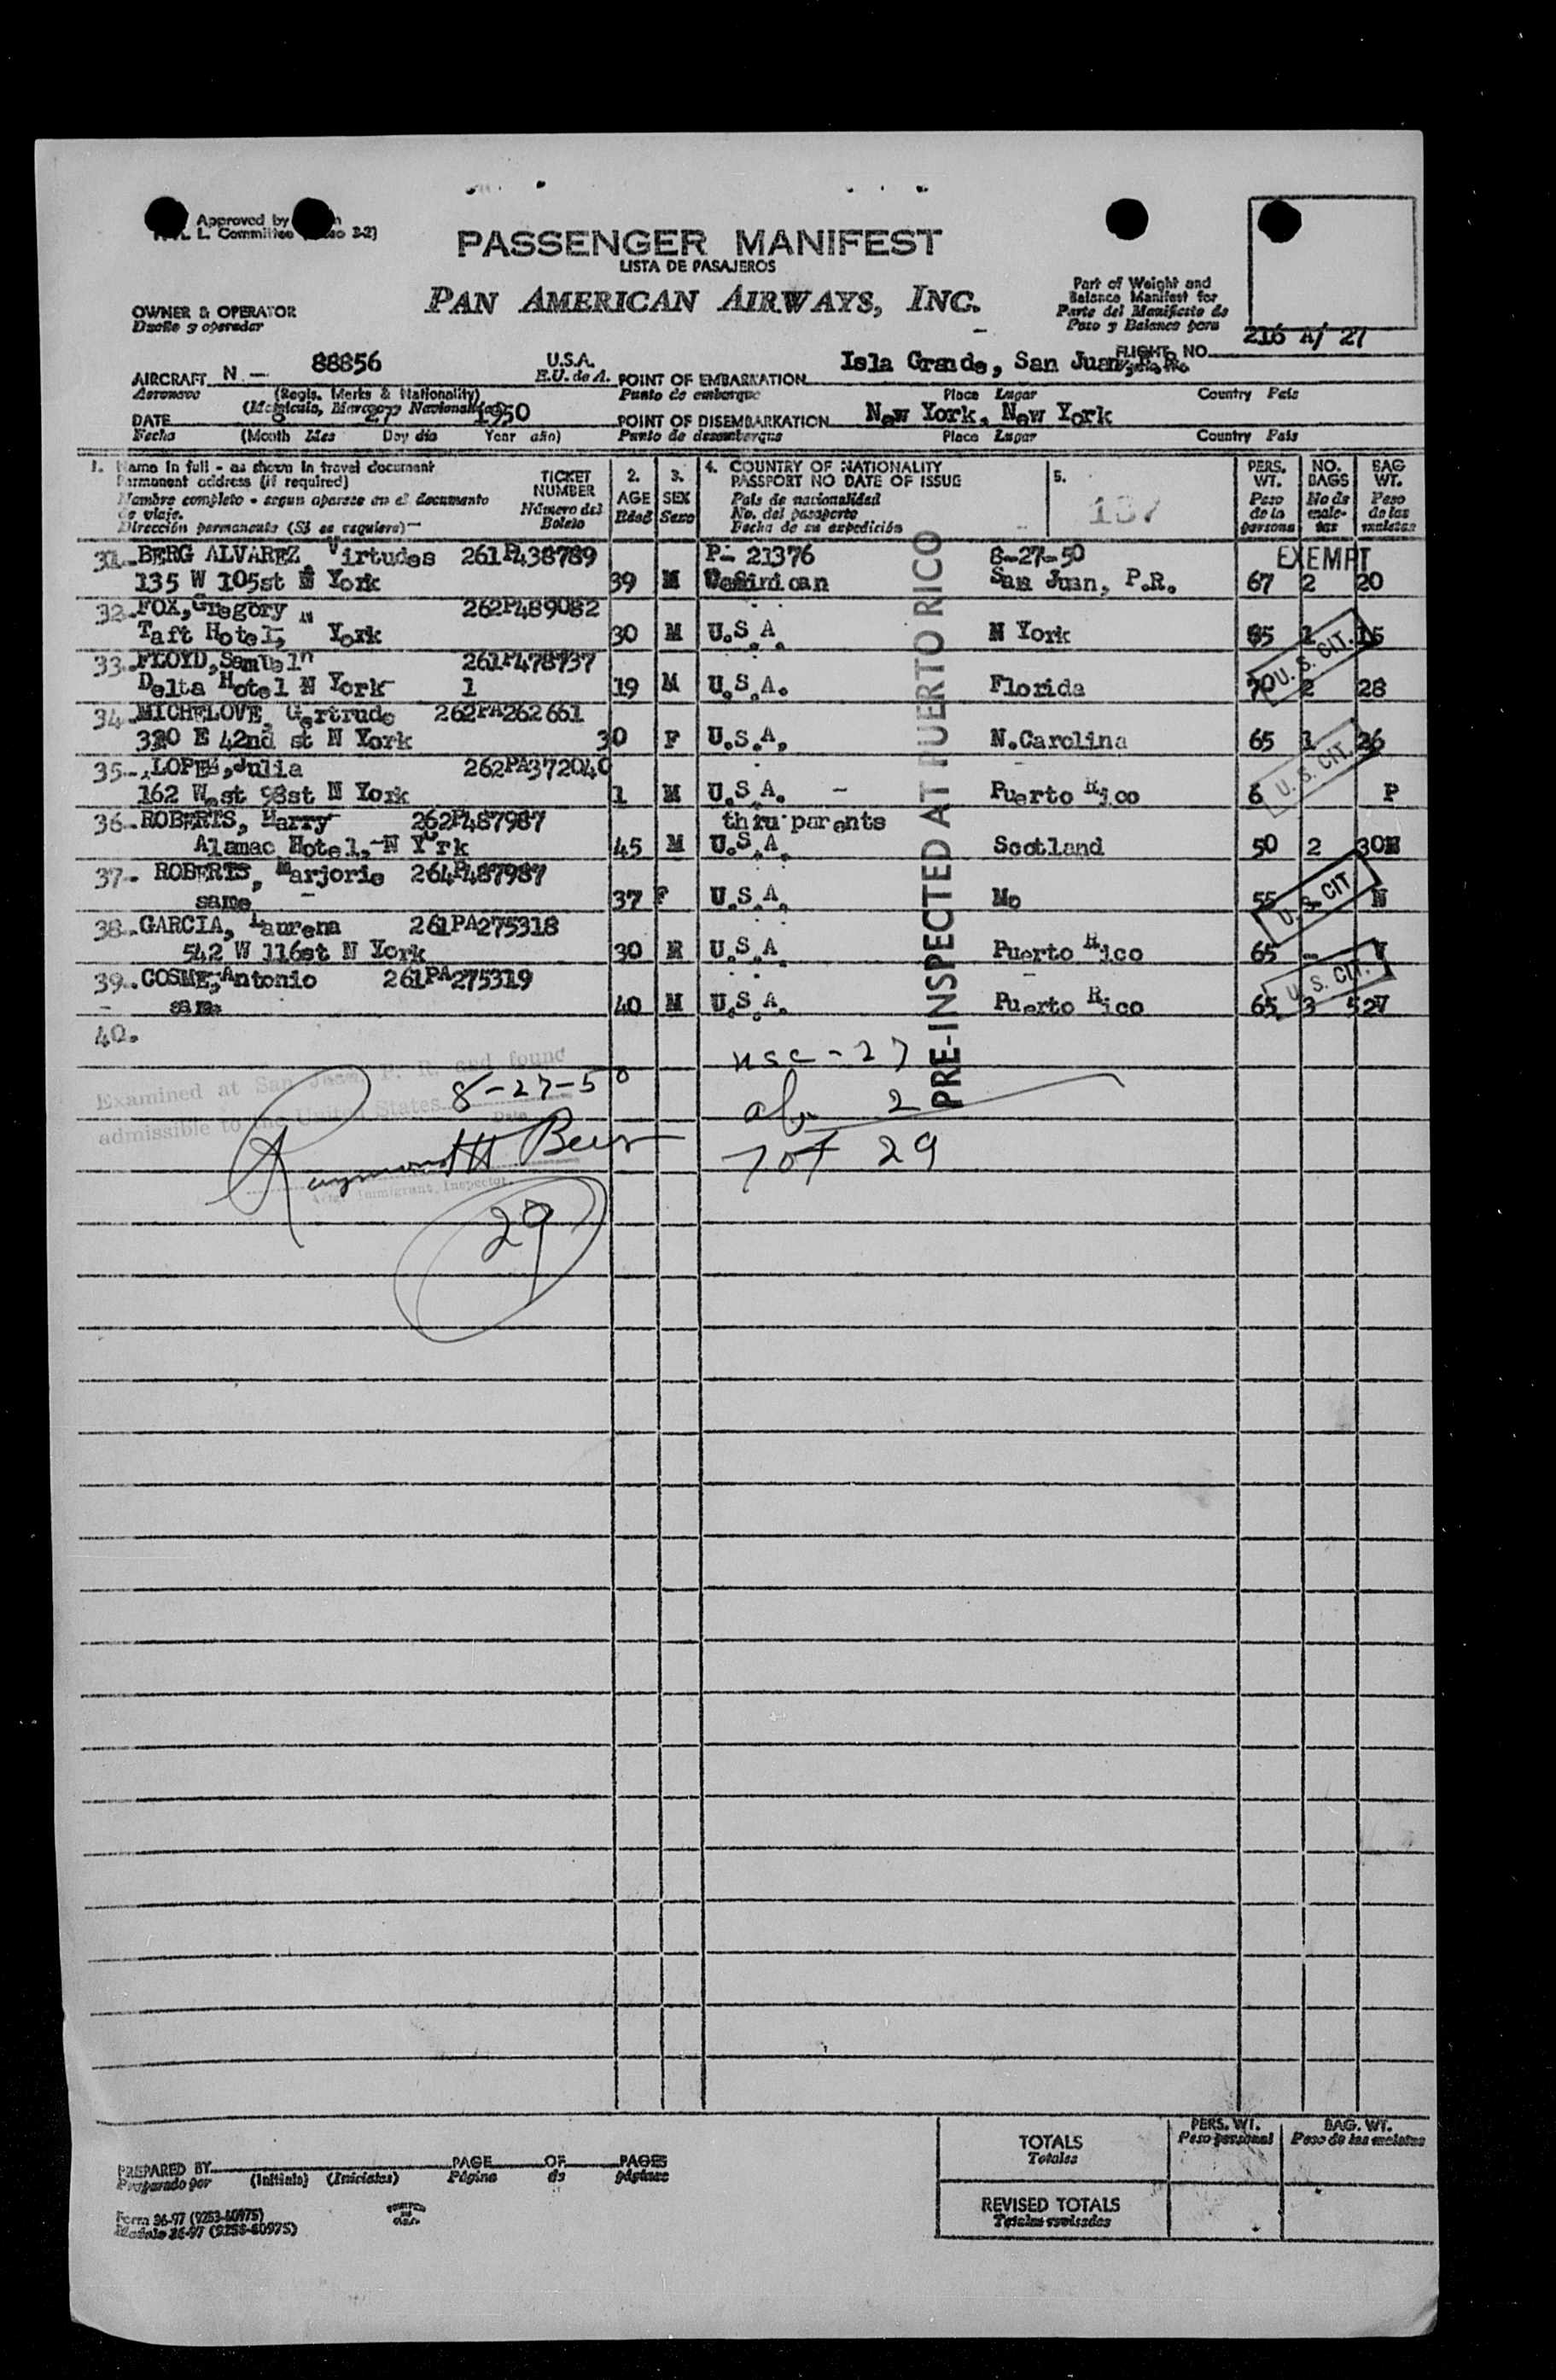 Approved by
L. Committee
PASSENGER MANIFEST
LISTA DE PASAJEROS
PAN AMERICAN AIRWAYS, INC.
OWNER & OPERATOR
Dueño y operador
Part of Weight and
Balance Manifest for
Parte del Manifiesto de
Peso y Balance para
216 A/ 27
FLIGHT NO.
AIRCRAFT N - 88856 U.S.A.
Aeronave (Regis. Marks & Nationality) E.U. de A.
POINT OF EMBARKATION Isla Grande, San Juan,
Punto de embarque Place Lugar Country País
DATE 8 27 1950
Fecha (Month Mes Day día Year año)
POINT OF DISEMBARKATION New York, New York
Punto de desembarque Place Lugar Country País
1. Name in full - as shown in travel document
Permanent address (if required)
Nombre completo - segun aparece en el documento
de viaje.
Dirección permanente (Si se requiere)
TICKET
NUMBER
Número del
Boleto
2.
AGE
Edad
3.
SEX
Sexo
4. COUNTRY OF NATIONALITY
PASSPORT NO DATE OF ISSUE
País de nacionalidad
No. del pasaporte
Fecha de su expedición
5.
137
PERS.
WT.
Peso
de la
persona
NO.
BAGS
No de
male-
tas
BAG
WT.
Peso
de las
maletas
31. BERG ALVAREZ, Virtudes 261P438789 P- 21376 8-27-50 EXEMPT
135 W 105st N York 39 M San Juan, P.R. 67 2 20
32. FOX, Gregory 262P489082
Taft Hotel, N York 30 M U.S.A. N York 85 1 15
33. FLOYD, Samuel 261P478937
Delta Hotel N York 1 19 M U.S.A. Florida 70 2 28
34. MICHELOVE, Gertrude 262PA262661
320 E 42nd st N York 30 F U.S.A. N.Carolina 65 1 26
35. LOPEZ, Julia 262PA372040
162 West 98st N York 1 M U.S.A. - Puerto Rico 6 P
36. ROBERTS, Harry 262P487987 thru parents
Alamac Hotel, N York 45 M U.S.A. Scotland 50 2 30N
37. ROBERTS, Marjorie 264P487987
same 37 F U.S.A. Mo 55 - N
38. GARCIA, Laurena 261PA275318
542 W 116st N York 30 U.S.A. Puerto Rico 65 - V
39. COSME, Antonio 261PA275319
same 40 M U.S.A. Puerto Rico 65 3 52V
40.
U. S. CIT.
U. S. CIT.
U. S. CIT
U. S. CIT.
PRE-INSPECTED AT PUERTO RICO
Examined at San Juan, P. R. and found
admissible to the United States 8-27-50
Date
Raymond H Beer
Immigrant Inspector.
29
usc - 27
2
Tot 29
PREPARED BY (Initials) (Iniciales)
Preparado por
PAGE OF PAGES
Página de páginas
Form 36-97 (9253-60975)
Modelo 36-97 (9253-60975)
TOTALS
Totales
PERS. WT.
Peso personal
BAG. WT.
Peso de las maletas
REVISED TOTALS
Totales revisados